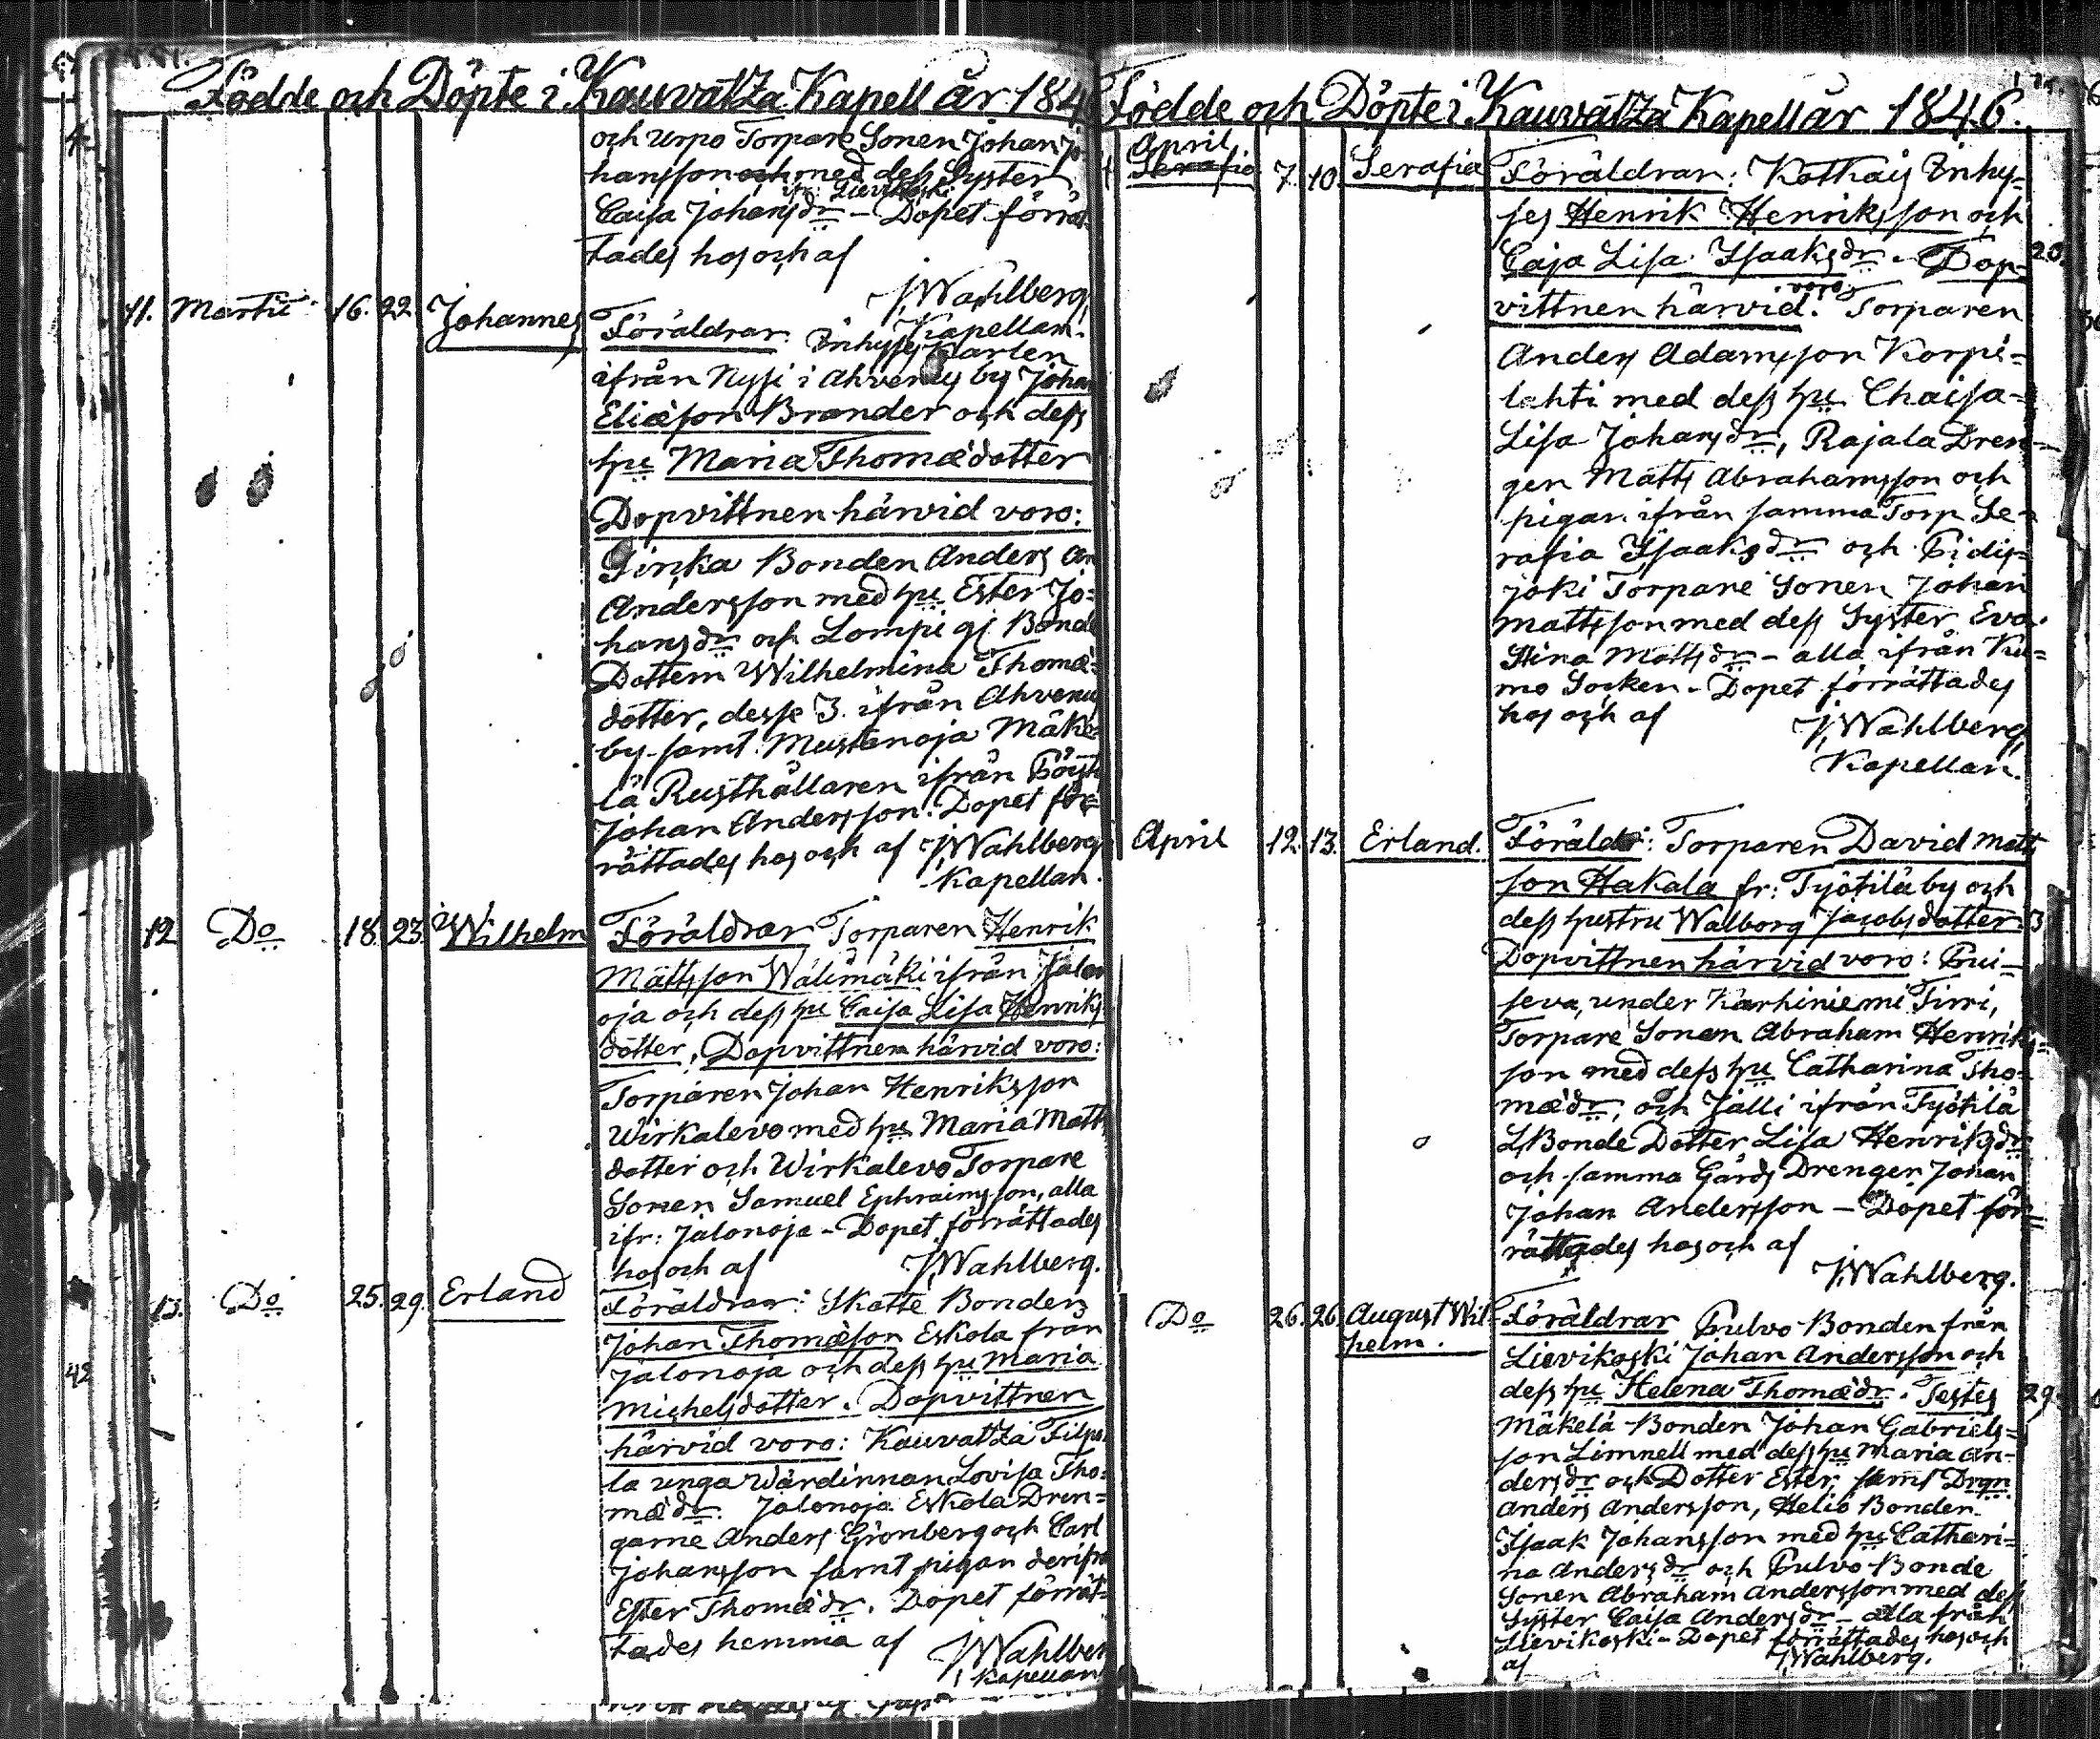 Födde och Döpte i Kauvatza Kapell år 184
och Urpo Torpare Sonen Johan Jo
hansson och med dess Syster
ifr: Lievikoski
Caisa Johansdr – Dopet förrät
tades hos och af
J. Wahlberg
Kapellan.
11. Martii 16. 22. Johannes
Föräldrar: Inhyses Karlen
ifrån Nysi i Ahvenus by Johan
Eliæson Brander och dess
hu Maria Thomædotter
Dopvittnen härvid voro:
Pirka Bonden Anders An
Andersson med hu Ester Jo=
hansdr och Lompi gj Bonde
Dottern Wilhelmina Thomæ=
dotter, desse 3. ifrån Ahvenus
by samt Mustanoja Mäke=
lä Rusthållaren ifrån
Johan Andersson. Dopet för=
rättades hos och af J. Wahlberg
Kapellan.
12 Do 18. 23. Wilhelm
Föräldrar Torparen Henrik
Mattsson Wälimäki ifrån Jalon
oja och dess hu Caisa Lisa Henriks
dotter, Dopvittnen härvid voro:
Torparen Johan Henriksson
Wirkalevo med hu Maria Matts
dotter och Wirkalevo Torpare
Sonen Samuel Ephraimsson, alla
ifr: Jalonoja – Dopet förrättades
hos och af J. Wahlberg.
13. Do 25. 29. Erland
Föräldrar: Skatte Bonden
Johan Thomæson Eskola från
Jalonoja och dess hu Maria
Michelsdotter. Dopvittnen
härvid voro: Kauvatza Filpu
la unga Wärdinnan Lovisa Tho=
mædr. Jalonoja Eskola Dren=
garne Anders Grönberg och Carl
Johansson samt pigan derifrå
Ester Thomædr. Dopet förrät=
tades hemma af J. Wahlber
Kapellan
42
Födde och Döpte i Kauvatza Kapell år 1846.
April
Serafia 7. 10. Serafia
Föräldrar: Kotkais Inhy=
ses Henrik Henriksson och
Cajsa Lisa Isaaksdr. Dop=
voro
vittnen härvid. Torparen
Anders Adamsson Korpi=
lahti med dess hu Chaisa=
Lisa Johansdr, Rajala Dren=
gen Matts Abrahamsson och
pigan ifrån samma Torp Se=
rafia Isaaksdr och
joki Torpare Sonen Johan
Mattsson med dess Syster Eva
Stina Mattsdr – alla ifrån Ku=
mo Socken – Dopet förrättades
hos och af J. Wahlberg
Kapellan.
April 12. 13. Erland.
Föräldr: Torparen David Matts
son Hakala fr: Työtilä by och
dess hustru Walborg Jacobsdotter.
Dopvittnen härvid voro: Pui=
seva, under Karhiniemi Tirri,
Torpare Sonen Abraham Henriks=
son med dess hu Catharina Tho=
mædr, och Jalli ifrån Työtilä
Bonde Dotter Lisa Henriksdr
och samma Gårds Drengen Johan
Johan Andersson – Dopet för=
rättades hos och af
J. Wahlberg.
Do 26. 26. August Wil=
helm.
Föräldrar Pulvo Bonden från
Lievikoski Johan Andersson och
dess hu Helena Thomædr. Testes
Mäkelä Bonden Johan Gabriels=
son Limnell med dess hu Maria An=
dersdr och Dotter Ester, samt Drgn
Anders Andersson, Heliö Bonden
Isaak Johansson med hu Cathari=
na Andersdr och Pulvo Bonde
Sonen Abraham Andersson med dess
Syster Caisa Andersdr – alla från
Lievikoski – Dopet förrättades hos och
af J. Wahlberg.